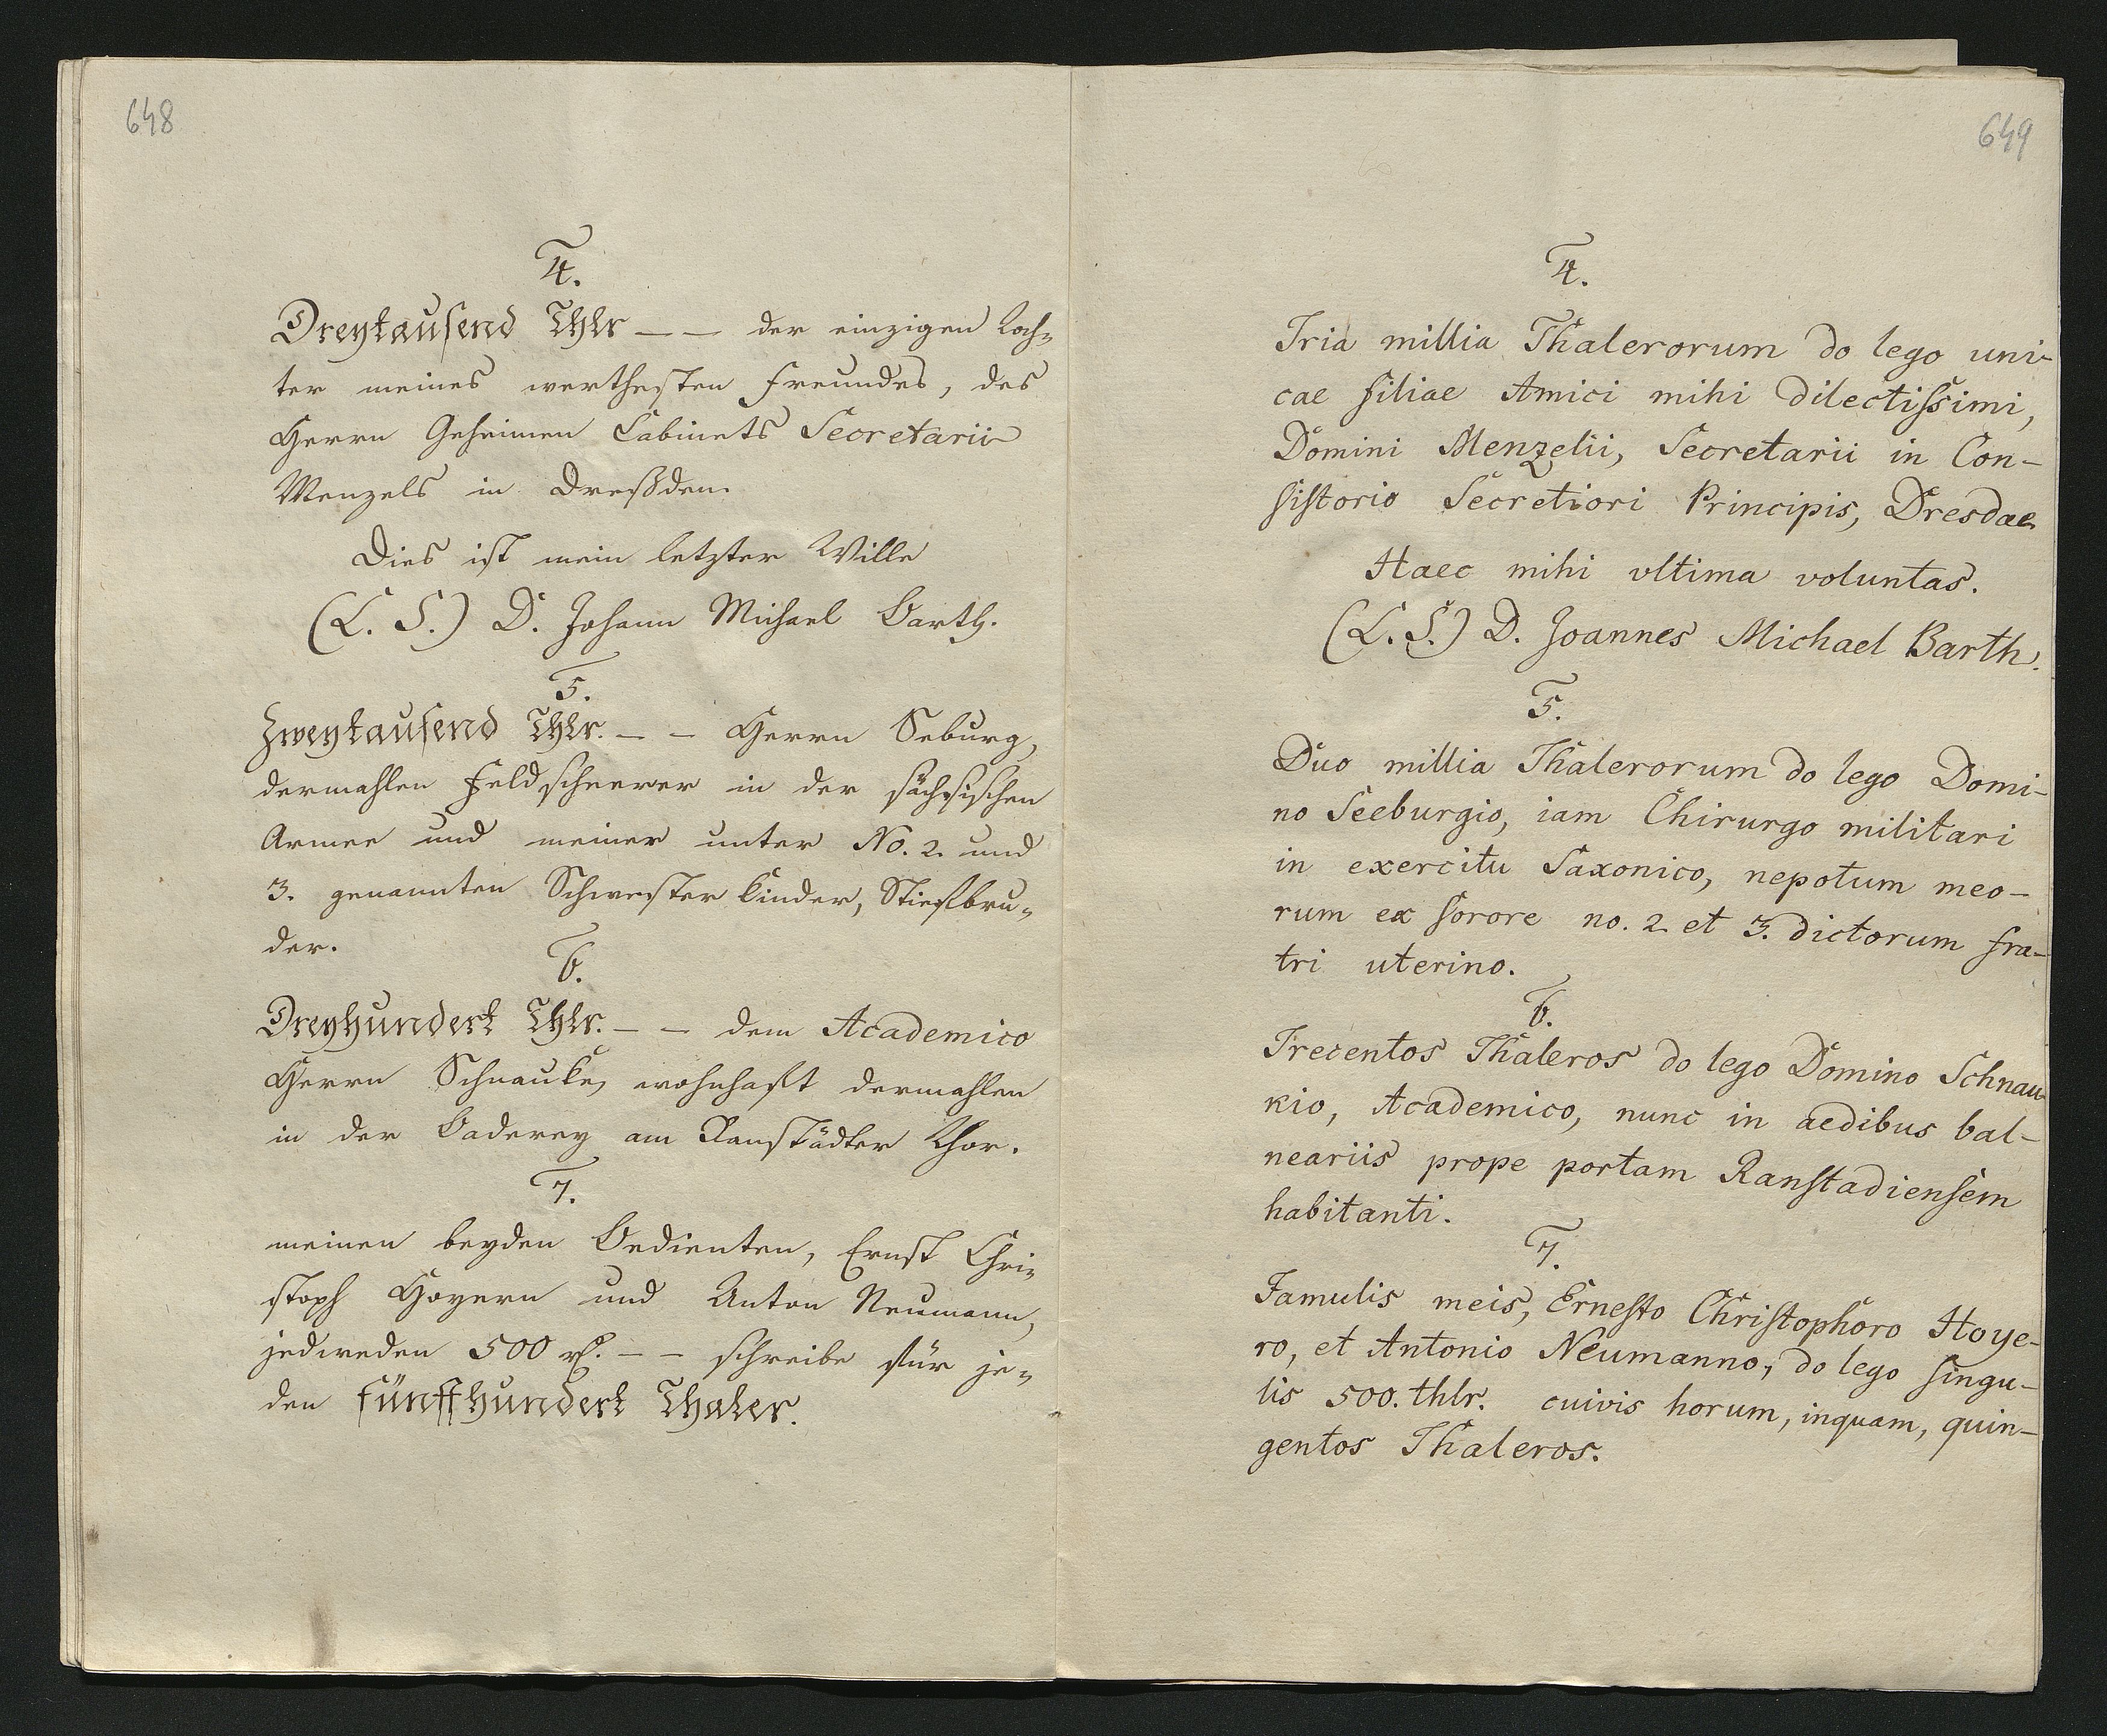 648
4.
Dreytausend Thlr — — der einzigen Toch=
ter meines werthesten Freundes, des
Herrn Geheimen Cabinets Secretarii
Menzels in Dreßden.
Dies ist mein letzter Wille
(L. S.) D. Johann Michael Barth.
5.
Zweytausend Thlr. — — Herrn Seburg,
dermahlen Feldscheerer in der sächsischen
Armee und meiner unter No. 2. und
3. genannten Schwester Kinder, Stiefbru=
der.
6.
Dreyhundert Thlr. — — dem Academico
Herrn Schnauke, wohnhaft dermahlen
in der Baderey am Ranstädter Thor.
7.
meinen beyden Bedienten, Ernst Chri=
stoph Hoyern und Anton Neumann,
jedweden 500 rl. — — schreibe für je=
den fünffhundert Thaler.
649
4.
Tria millia Thalerorum do lego uni-
cae filiae Amici mihi dilectissimi,
Domini Menzelii, Secretarii in Con-
sistorio Secretiori Principis, Dresdae
Haec mihi vltima voluntas.
(L. S.) D. Joannes Michael Barth.
5.
Duo millia Thalerorum do lego Domi-
no Seeburgio, iam Chirurgo militari
in exercitu Saxonico, nepotum meo-
rum ex sorore no. 2. et 3. dictorum fra-
tri uterino.
6.
Trecentos Thaleros do lego Domino Schnau-
kio, Academico, nunc in aedibus bal-
neariis prope portam Ranstadiensem
habitanti.
7.
Famulis meis, Ernesto Christophoro Hoye-
ro, et Antonio Neumanno, do lego singu-
lis 500. thlr. cuivis horum, inquam, quin-
gentos Thaleros.